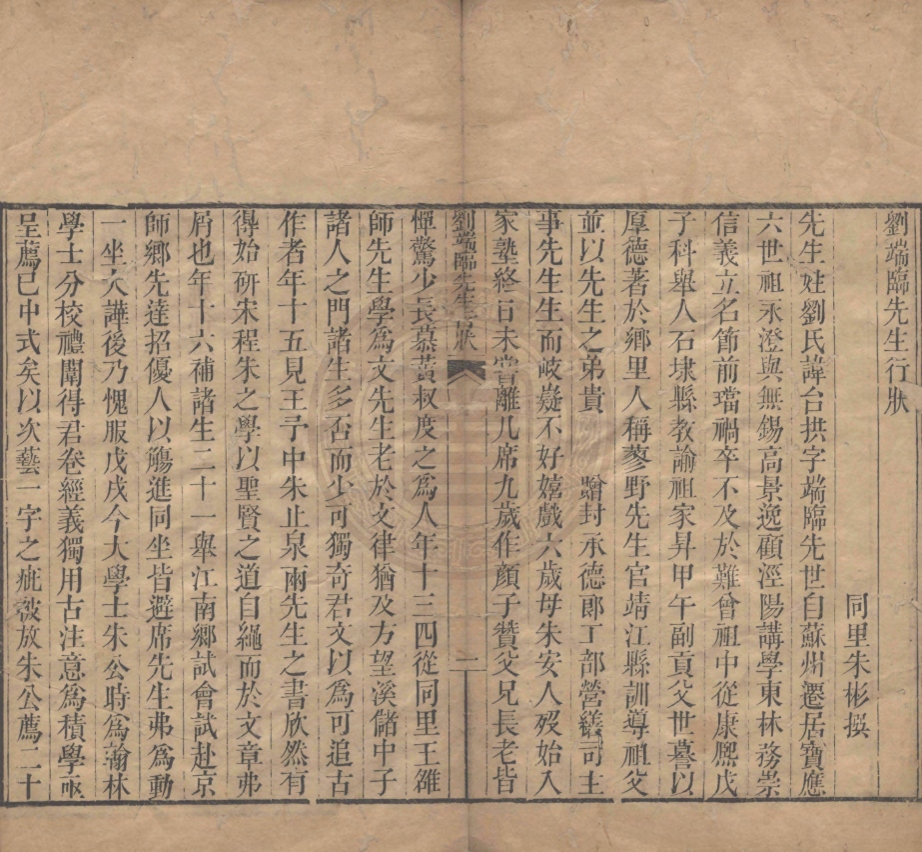 劉端臨先生行狀
同里朱彬撰
先生姓劉氏諱台拱字端臨先世自蘇州遷居寶應
六世祖永澄與無錫高景逸顧涇陽講學東林務崇
信義立名節前璫禍卒不及於難曾祖中從康熙戊
子科舉人石埭縣教諭祖家昇甲午副貢父世謩以
厚德著於鄉里人稱蓼野先生官靖江縣訓導祖父
並以先生之弟貴　贈封承德郎工部營繕司主
事先生生而岐嶷不好嬉戲六歲母朱安人歿始入
家塾終日未嘗離几席九歲作顏子贊父兄長老皆
劉端臨先生行狀
一
憚驚少長慕黃叔度之為人年十三四從同里王雒
師先生學為文先生老於文律猶及方望溪儲中子
諸人之門諸生多否而少可獨奇君文以為可追古
作者年十五見王予中朱止泉兩先生之書欣然有
得始研宋程朱之學以聖賢之道自繩而於文章弗
屑也年十六補諸生二十一舉江南鄉試會試赴京
師鄉先達招優人以觴進同坐皆避席先生弗為動
一坐大譁後乃愧服戊戌今大學士朱公時為翰林
學士分校禮闈得君卷經義獨用古注意為積學亟
呈薦已中式矣以次藝一字之疵被放朱公薦二十